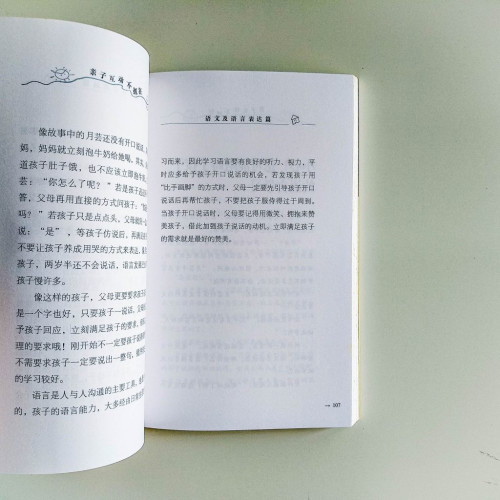 亲子互动不
像故事中的月芸还没有开口说
妈,妈妈就立刻泡牛奶给她喝
道孩子肚子饿,也不应该立即泡牛
芸:“你怎么了呢?”若是孩子
答,父母再用直接的方式问孩子:“
吗?”若孩子只是点点头,父母
说:“是”,等孩子仿说后,再
不要让孩子养成用哭的方式来表达
孩子,两岁半还不会说话,语言发
孩子慢许多。
像这样的孩子,父母更要要求孩子
是一个字也好,只要孩子一说话,父母
予孩子回应,立刻满足孩子的要求,
理的要求哦!刚开始不一定要
不需要求孩子一定要说出一整句,
的学习较好。
语言是人与人沟通的主要工具,
的,孩子的语言能力,大多经由
语文及语言表达篇
习而来,因此学习语言要有良好的听力、视力,平
时应多给予孩子开口说话的机会,若发现孩子用
“比手画脚”的方式时,父母一定要先引导孩子开口
说话后再帮忙孩子,不要把孩子服侍得过于周到。
当孩子开口说话时,父母要记得用微笑、拥抱来赞
美孩子,借此加强孩子说话的动机。立即满足孩子
的需求就是最好的赞美。
107